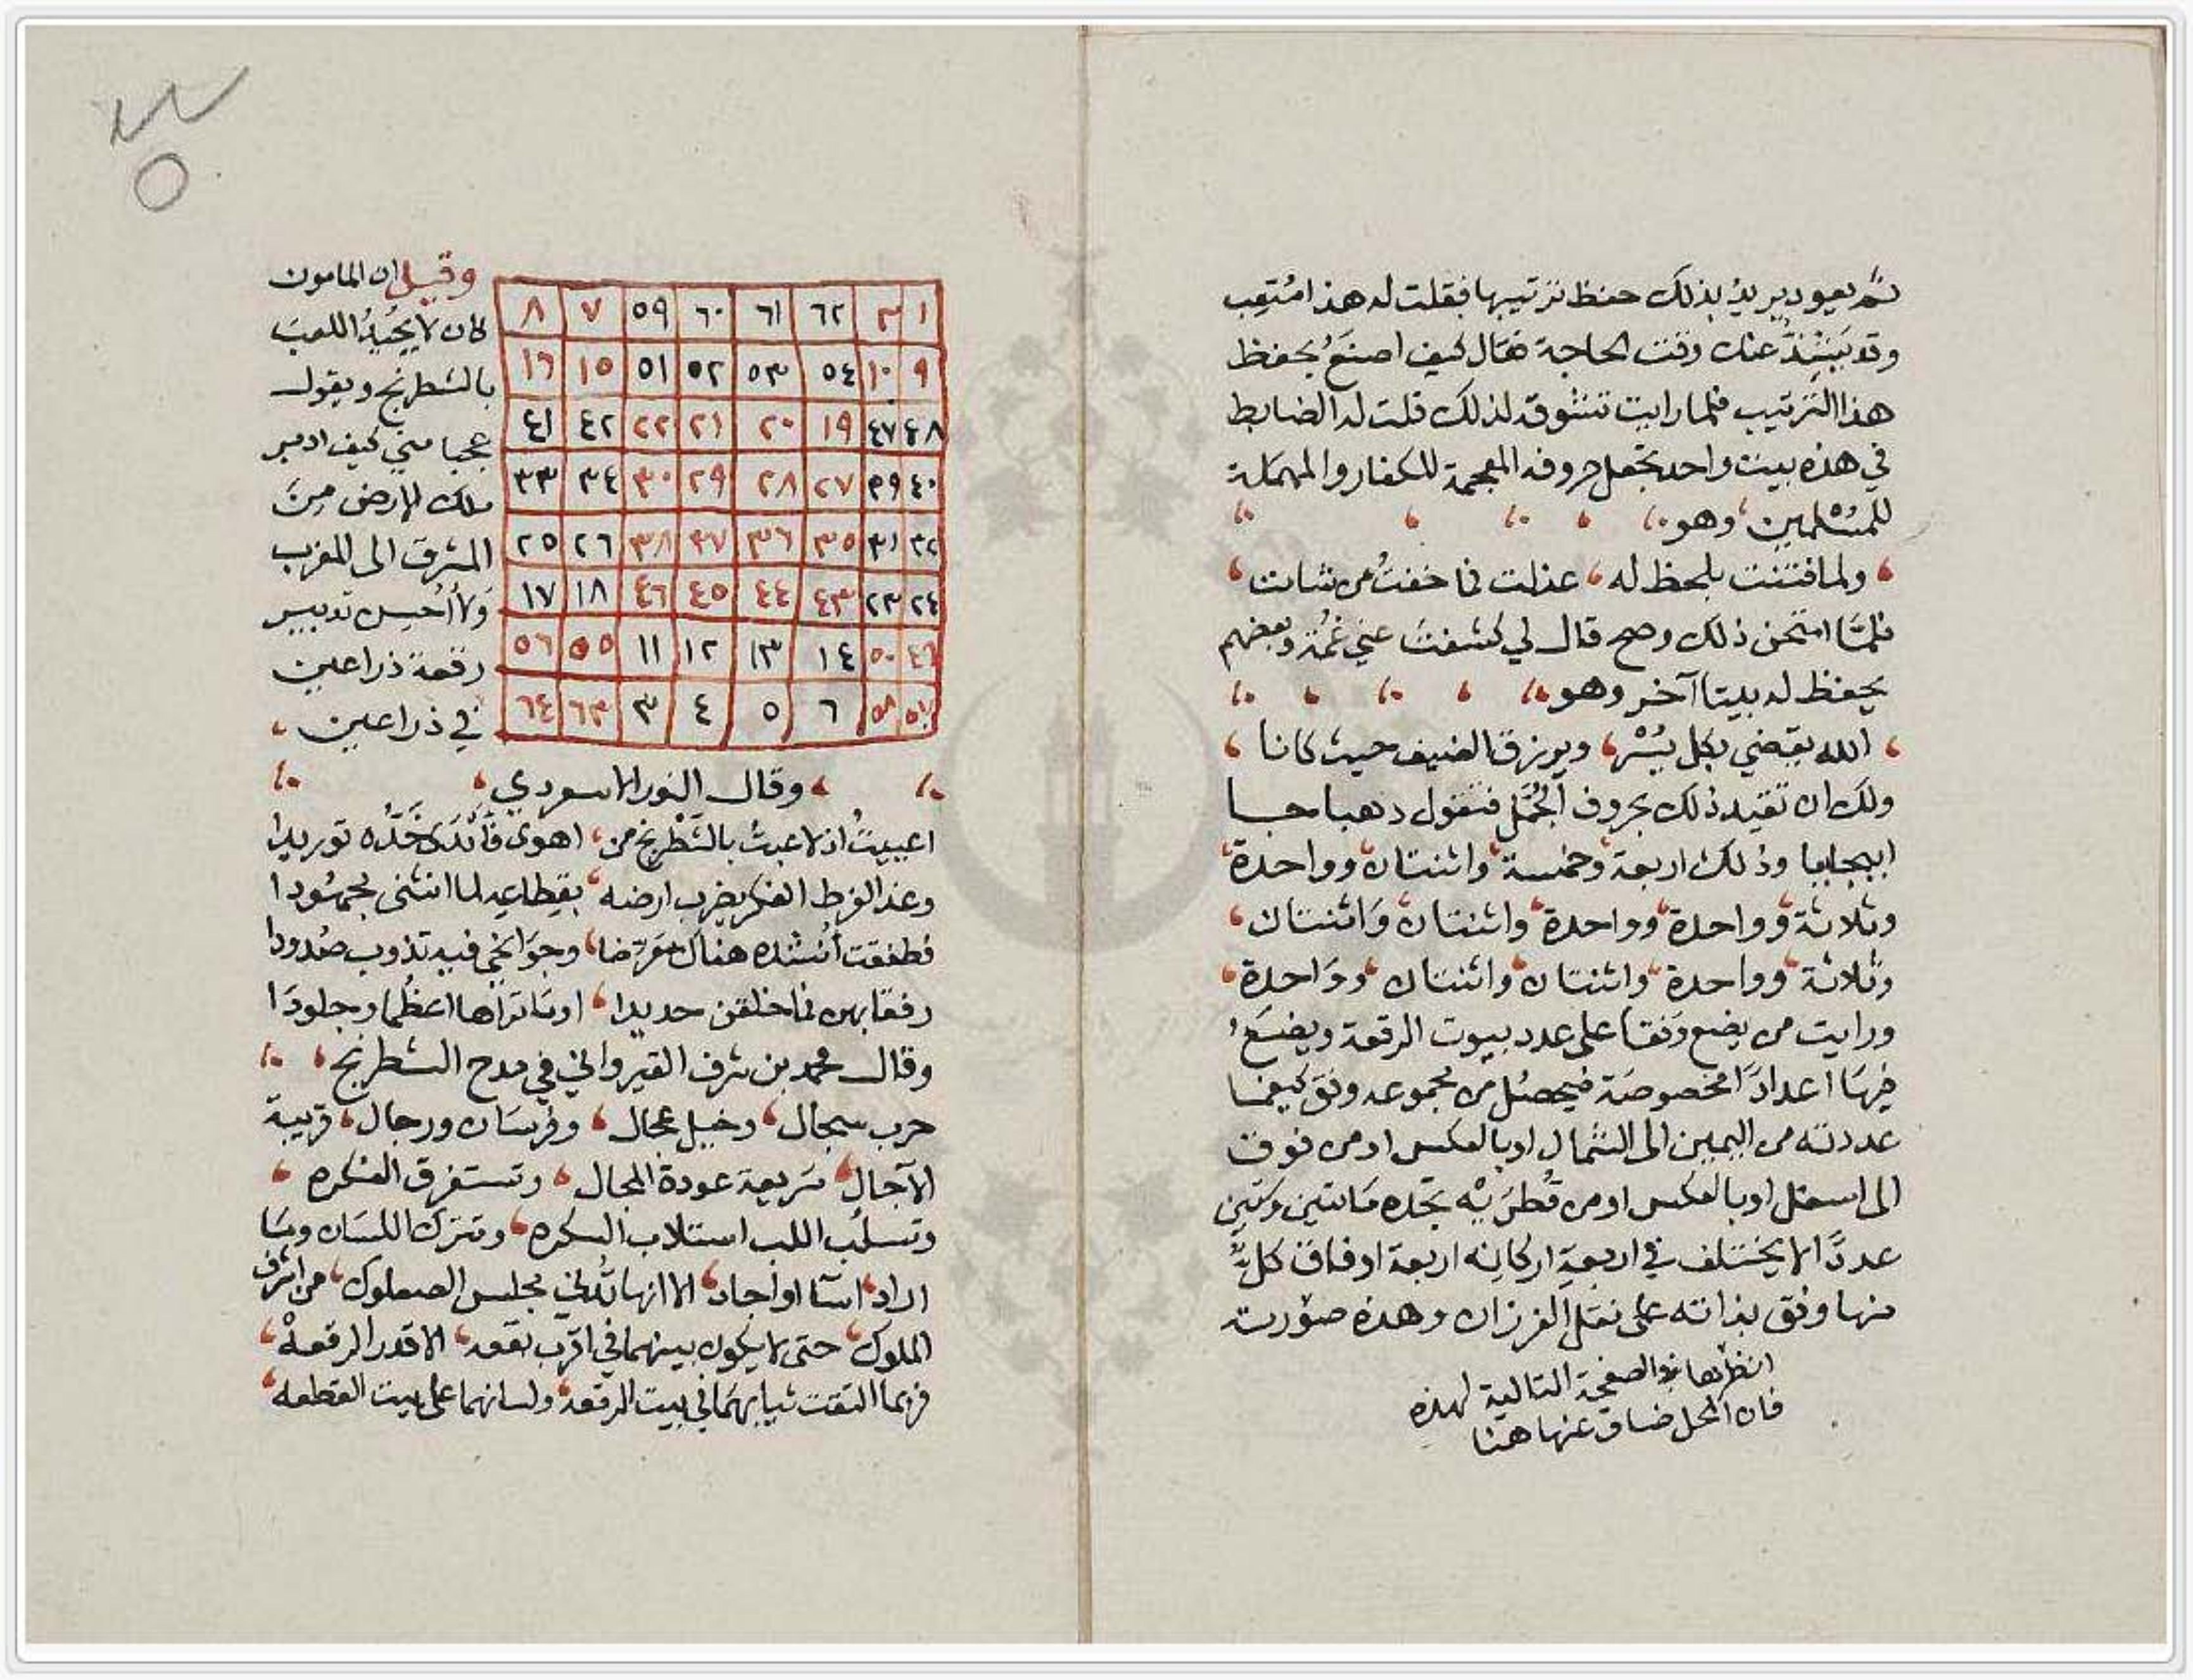 ثم يعود يريد بذلك حفظ ترتيبها فقلت له هذا متعب
وقد عنك وقت الحاجة فقال كيف اصنع بحفظ
هذا الترتيب فلما رايت تشوقه لذلك قلت له الضابط
في هذه بيت واحد تجعل حروفه المعجمة للكفار والمهملة
للمسلمين وهو
ولما فتنت بلحظ له عذلت فما خفت من شامت
فلما امتحن ذلك وصح قال لي كشفت عني غمة وبعضهم
يحفظ له بيتا آخر وهو
الله يقضي بكل يسر ويرزق الضيف حيث كانا
ولك ان تقيد ذلك بحروف الجمل فتقول دهبا جا
ابيجابا وذلك اربعة وخمسة واثنتان وواحدة
وثلاثة وواحدة وواحدة واثنتان واثنتان
وثلاثة وواحدة واثنتان واثنتان وواحدة
ورايت من يضع وفقا على عدد بيوت الرقعة ويضع
فيها اعدادا مخصوصة فيحصل من مجموعه وفق كيفما
عددته من اليمين الى الشمال او بالعكس او من فوق
الى اسفل او بالعكس او من قطريه تجده مائتين وستين
عددا لا يختلف في اربعة اركانه اربعة اوفاق كل
منها وفق بذاته على نقل الفرزان وهذه صورته
انظرها في الصفحة التالية لهذه
فان المحل ضاق عنها هنا
١ ٢ ٦٢ ٦١ ٦٠ ٥٩ ٧ ٨
٩ ١٠ ٥٤ ٥٣ ٥٢ ٥١ ١٥ ١٦
٤٨ ٤٧ ١٩ ٢٠ ٢١ ٢٢ ٤٢ ٤١
٤٠ ٣٩ ٢٧ ٢٨ ٢٩ ٣٠ ٣٤ ٣٣
٣٢ ٣١ ٣٥ ٣٦ ٣٧ ٣٨ ٢٦ ٢٥
٢٤ ٢٣ ٤٣ ٤٤ ٤٥ ٤٦ ١٨ ١٧
٤٩ ٥٠ ١٤ ١٣ ١٢ ١١ ٥٥ ٥٦
٥٧ ٥٨ ٦ ٥ ٤ ٣ ٦٣ ٦٤
وقيل ان المامون
كان لا يجيد اللعب
بالشطرنج ويقول
عجبا مني كيف ادبر
ملك الارض من
المشرق الى المغرب
ولا احسن تدبير
رقعة ذراعين
في ذراعين
وقال النور الاسعردي
اعييت اذ لاعبت بالشطرنج من اهوى فابدى خده توريدا
وغدا لفرط الفكر يضرب ارضه بقطاعه لما انثنى مجهودا
فطفقت انشده هناك معرضا وجوانحي فيه تذوب صدودا
رفقا بهن فما خلقن حديدا اوما تراها اعظما وجلودا
وقال محمد بن شرف القيرواني في مدح الشطرنج
حرب سجال وخيل عجال وفرسان ورجال قريبة
الآجال سريعة عودة المجال وتستغرق الفكره
وتسلب اللب استلاب السكره وتترك اللسان وما
اراد اسا او اجاد الا انها تدني مجلس الصعلوك من اشرف
الملوك حتى لا يكون بينهما في اقرب بقعه الا قدر الرقعه
فربما التقت ثيابهما في بيت الرقعه ولسانهما على بيت القطعه